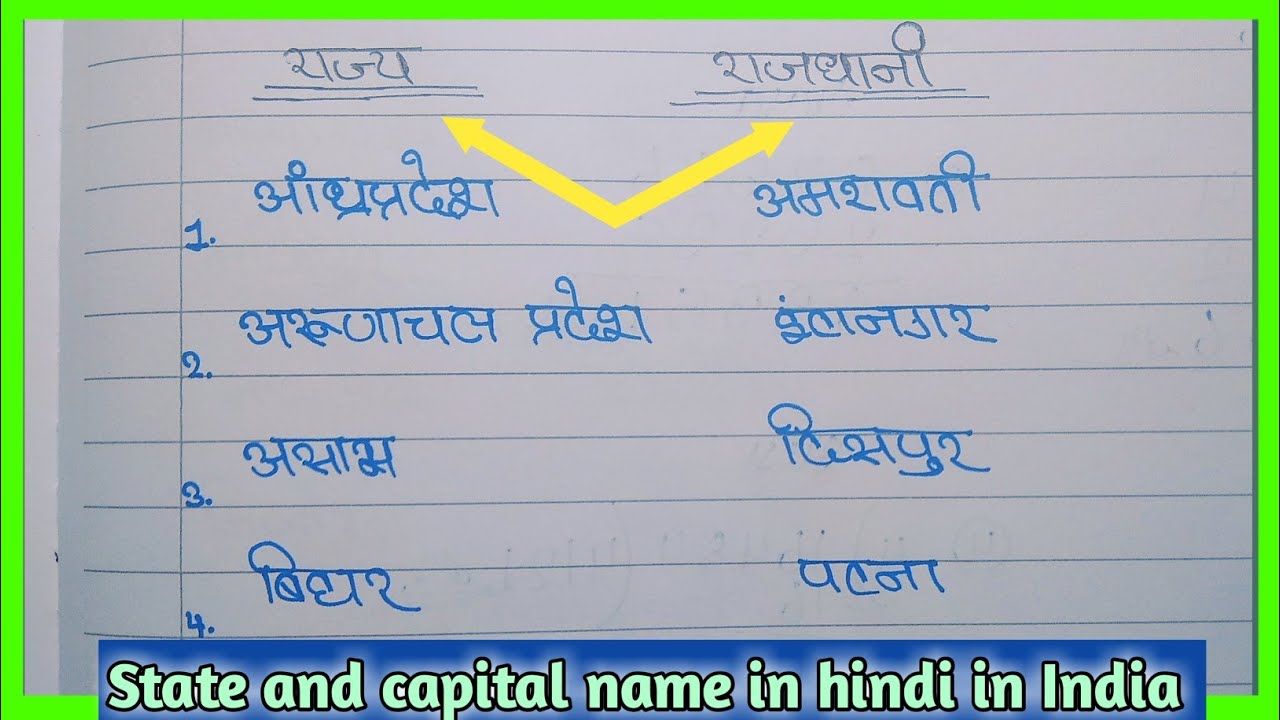 राज्य राजधानी
1. आंध्रप्रदेश अमरावती
2. अरूणाचल प्रदेश इंटानगर
3. असाम दिसपुर
4. बिहार पटना
State and capital name in hindi in India